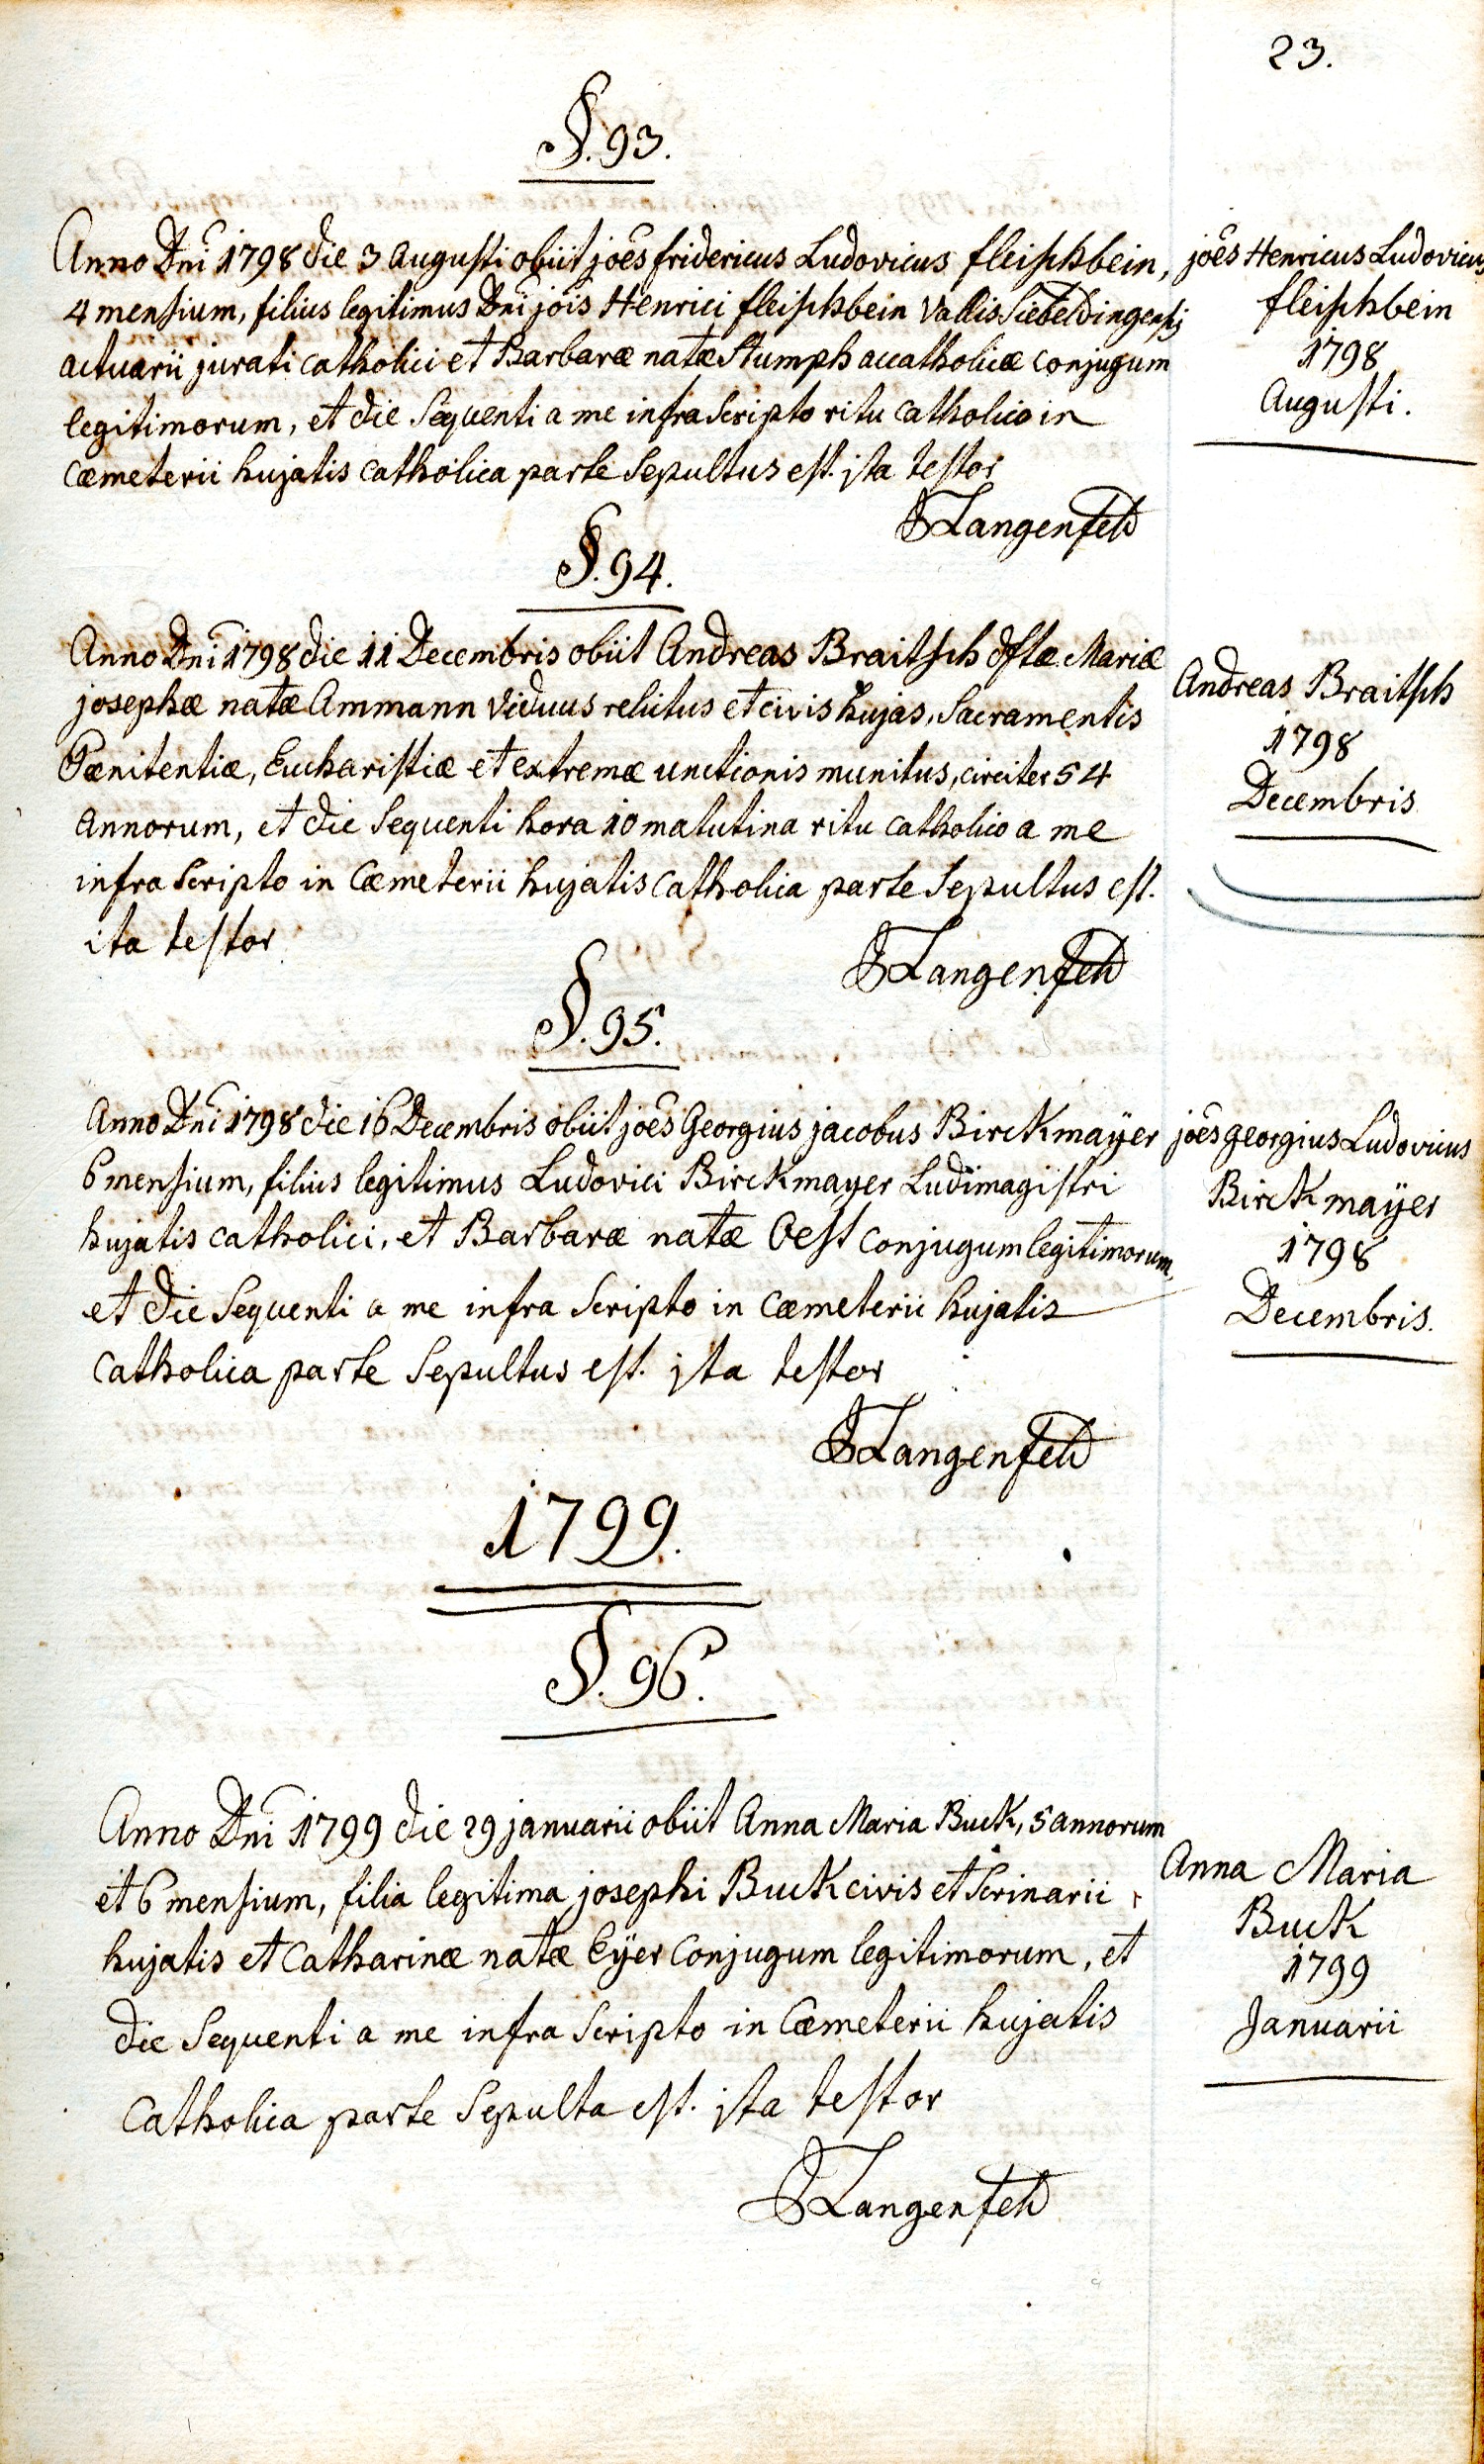 23.
§. 93.
Anno Dni 1798 die 3 Augusti obiit joes fridericus Ludovicus fleischbein,
4 mensium, filius legitimus Dni jois Henrici fleischbein Vallis Siebeldingensis
actuarii jurati catholici et Barbaræ natæ Stumph accatholicæ conjugum
legitimorum, et die sequenti a me infra scripto ritu catholico in
cæmeterii hujatis catholica parte sepultus est. jta testor
Langenfeld
joes Henricus Ludovicus
fleischbein
1798
Augusti.
§. 94.
Anno Dni 1798 die 11 Decembris obiit Andreas Braitsch dftæ Mariæ
josephæ natæ Ammann viduus relictus et civis hujas, Sacramentis
Pænitentiæ, Eucharistiæ et extremæ unctionis munitus, circiter 54
annorum, et die sequenti hora 10 matutina ritu catholico a me
infra scripto in Cæmeterii hujatis catholica parte sepultus est.
ita testor
Langenfeld
Andreas Braitsch
1798
Decembris
§. 95.
Anno Dni 1798 die 16 Decembris obiit joes Georgius jacobus Birckmaÿer
6 mensium, filius legitimus Ludovici Birckmayer Ludimagistri
hujatis catholici, et Barbaræ natæ Oest conjugum legitimorum,
et die sequenti a me infra scripto in cæmeterii hujatis
catholica parte sepultus est. jta testor
Langenfeld
joes georgius Ludovicus
Birckmaÿer
1798
Decembris.
1799.
§. 96.
Anno Dni 1799 die 29 januarii obiit Anna Maria Buck, 5 annorum
et 6 mensium, filia legitima josephi Buck civis et scrinarii
hujatis et Catharinæ natæ Eÿer conjugum legitimorum, et
die sequenti a me infra scripto in Cæmeterii hujatis
catholica parte sepulta est. jta testor
Langenfeld
Anna Maria
Buck
1799
Januarii